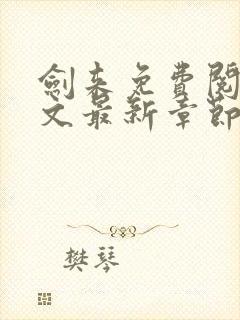 劍来免費閱
文最新章節
樊琴